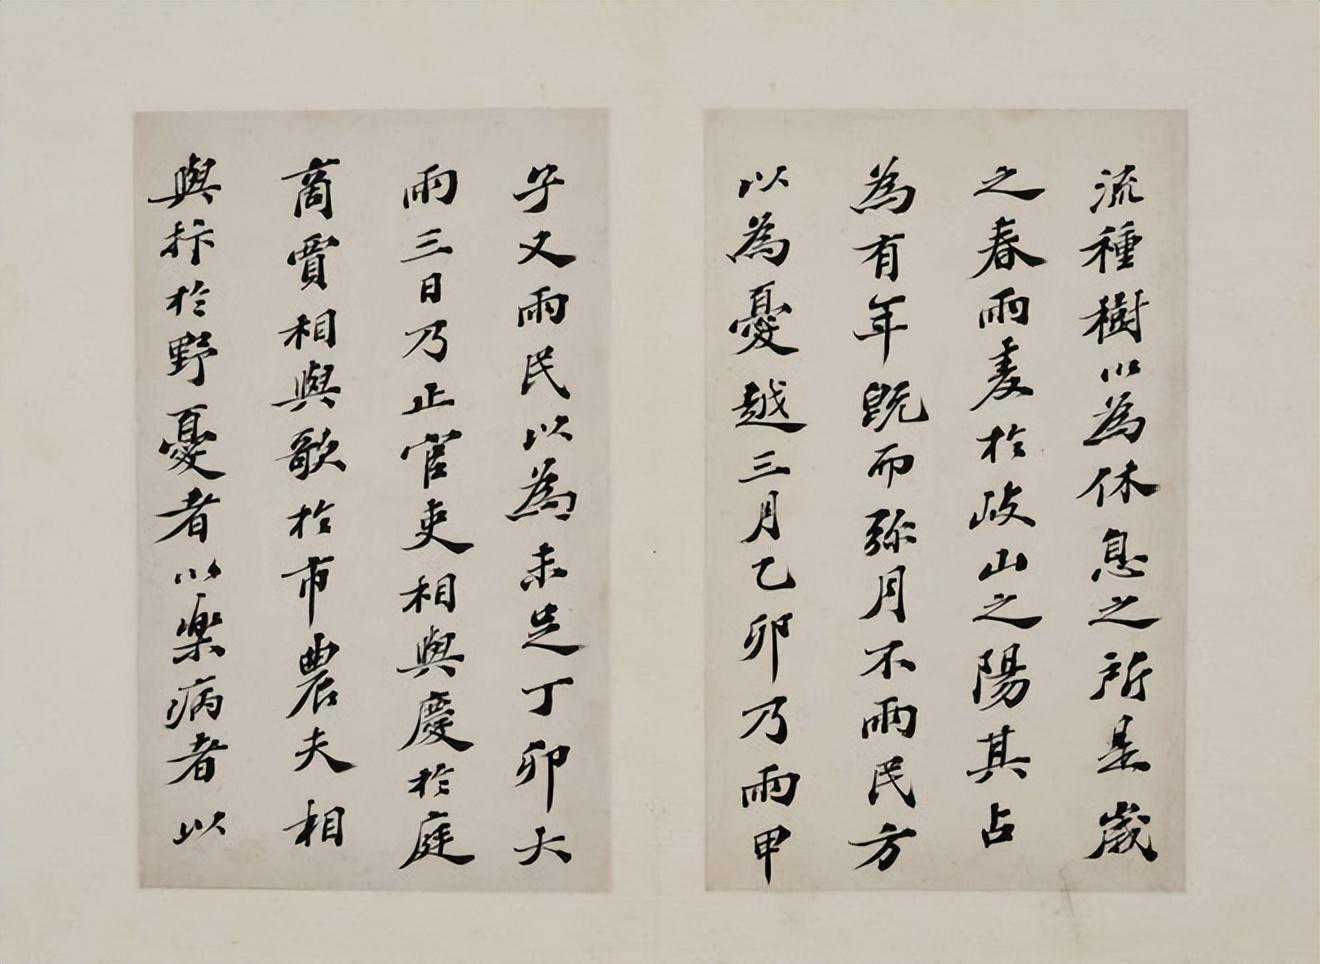 流種樹以為休息之所是歲
之春雨麦於岐山之陽其占
為有年既而弥月不雨民方
以為憂越三月乙卯乃雨甲
子又雨民以為未足丁卯大
雨三日乃止官吏相與慶於庭
商賈相與歌於市農夫相
與抃於野憂者以樂病者以